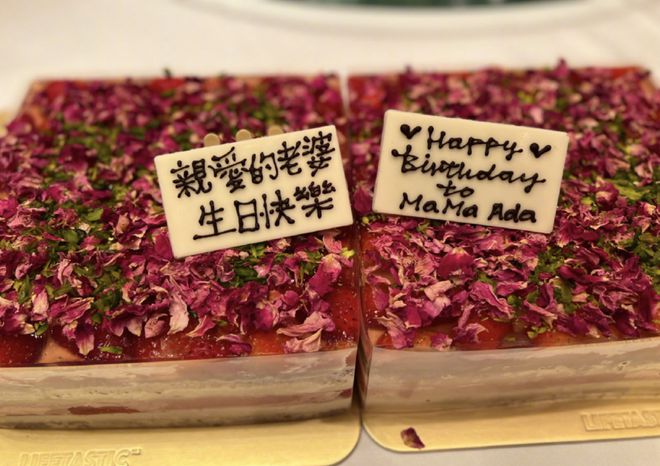 親愛的老婆
生日快樂
Happy
Birthday
to
MaMa Ada
LIFETASTIC
LIFETASTIC